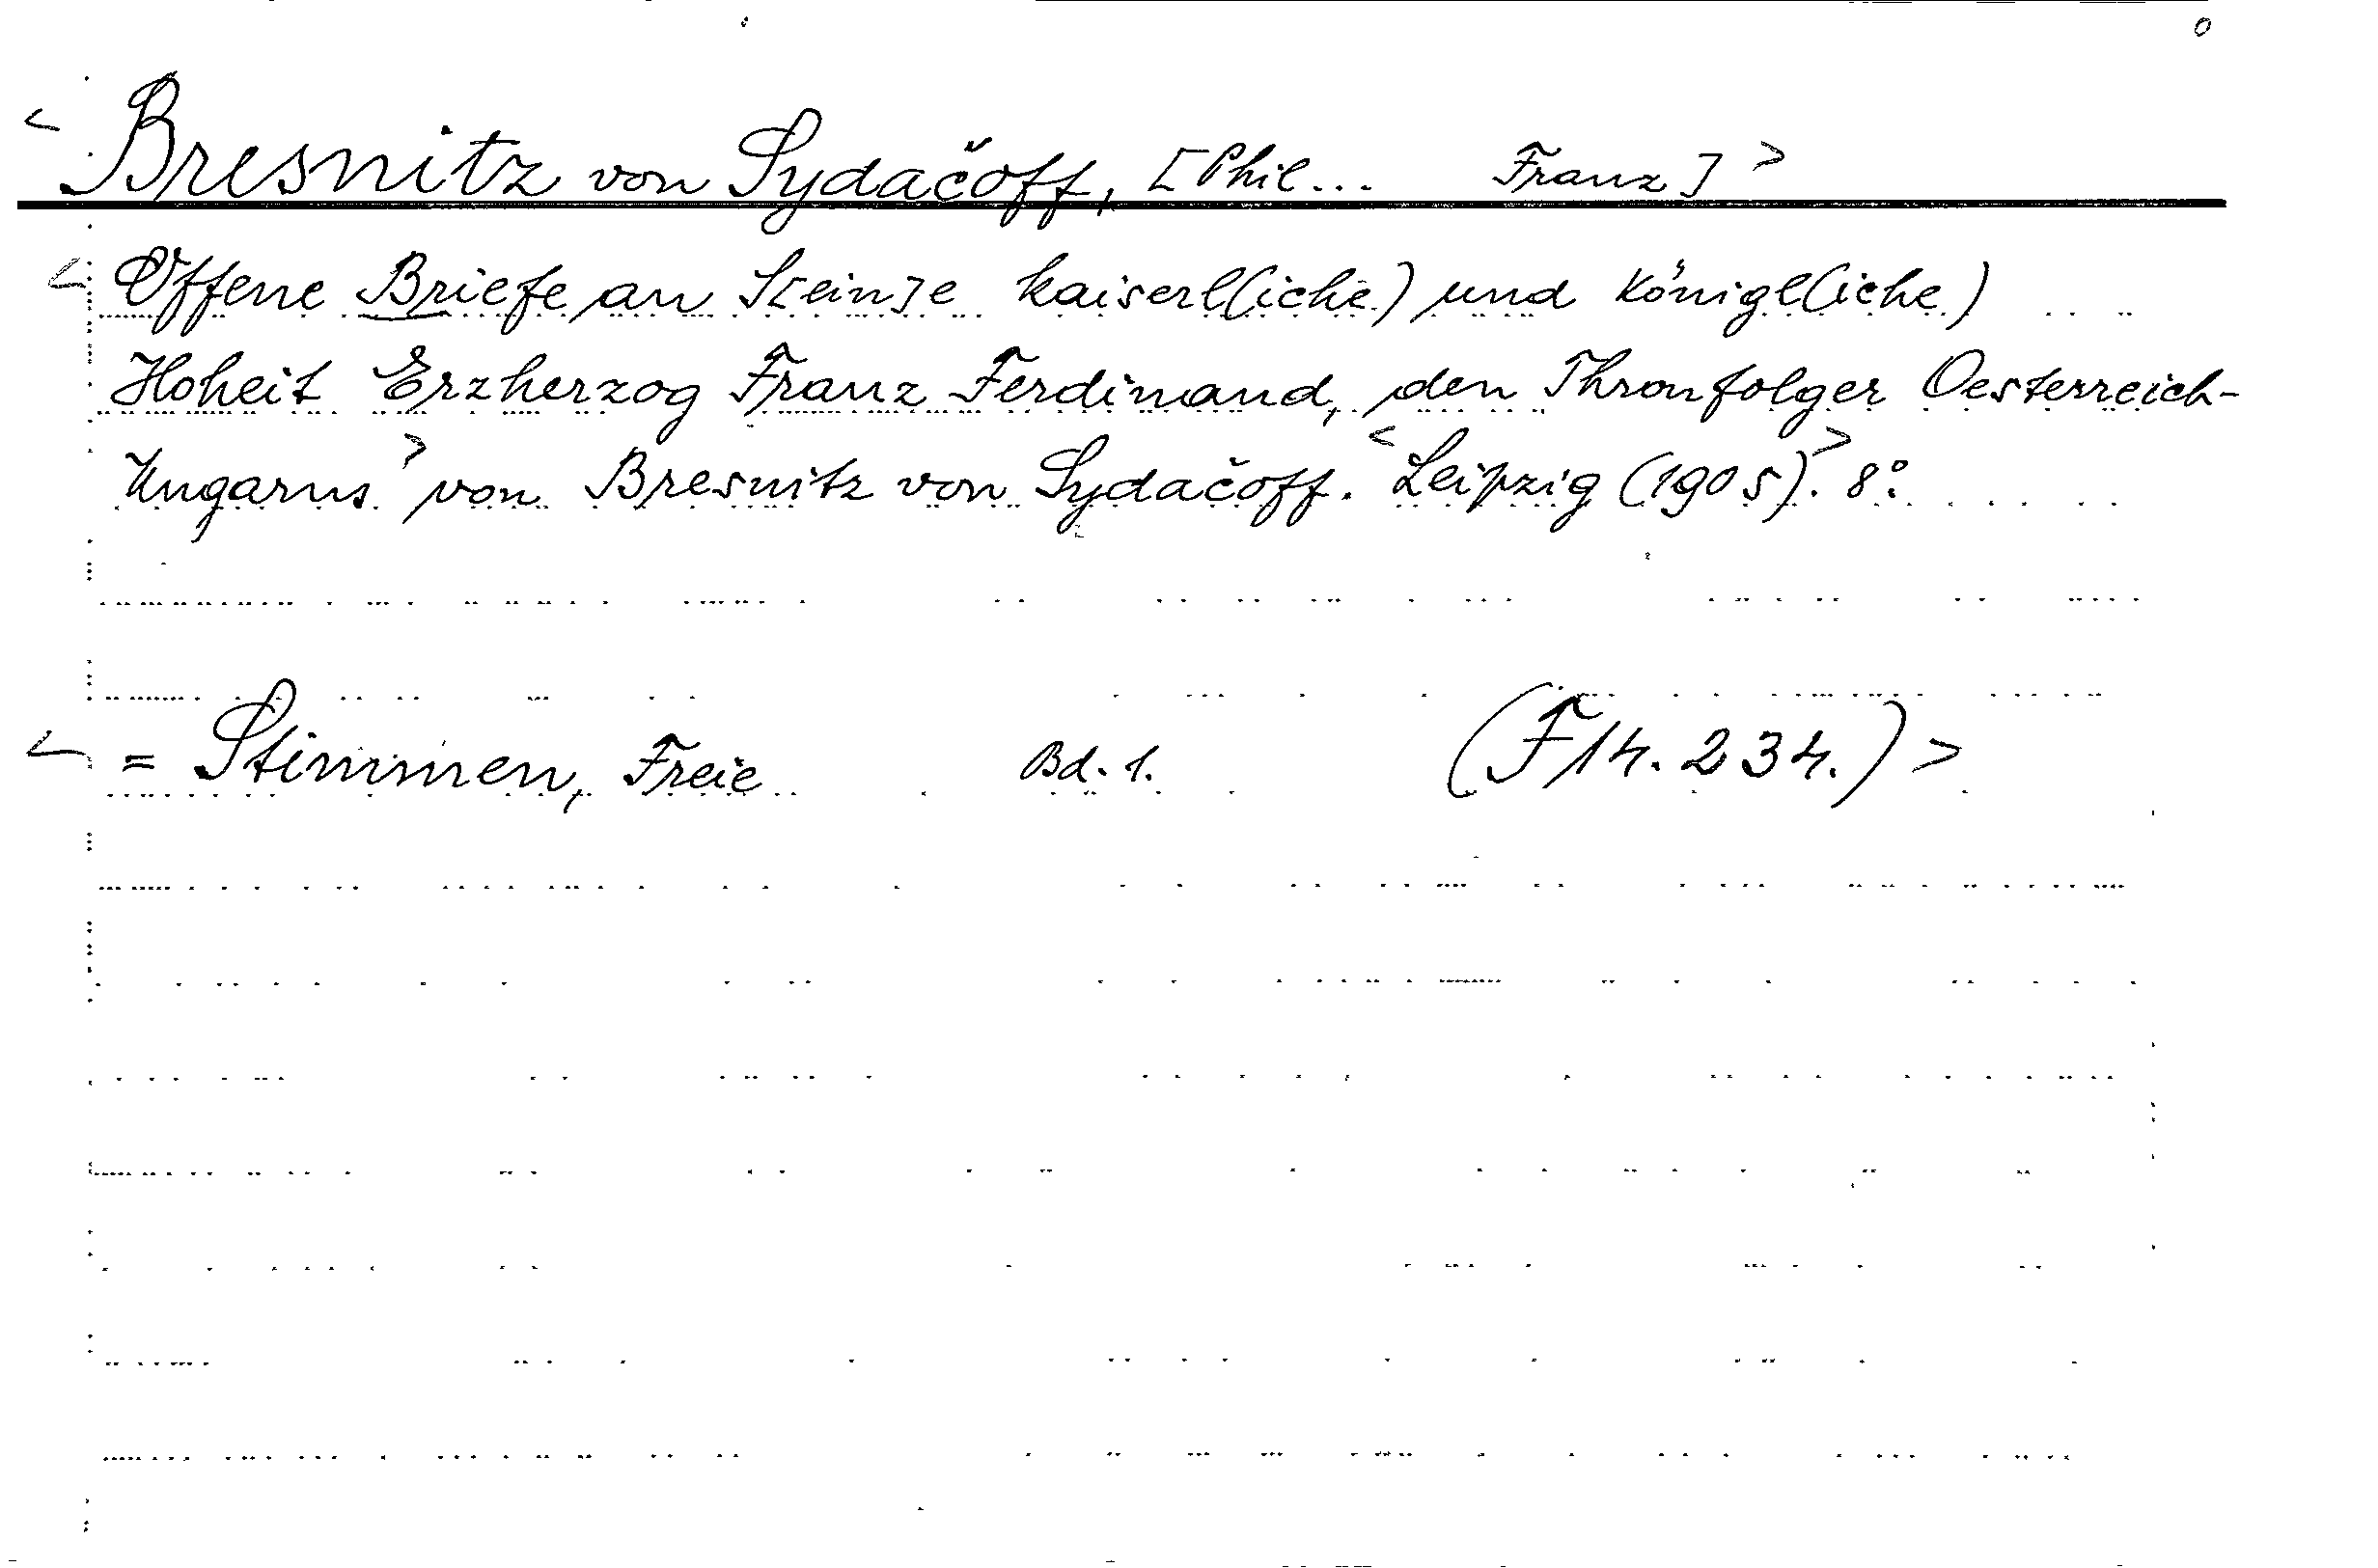 < Bresnitz von Sydačoff, [Phil... Franz] >
< Offene Briefe an S[ein]e kaiserl(iche) und königl(iche)
Hoheit Erzherzog Franz Ferdinand, den Thronfolger Oesterreich-
Ungarns > von Bresnitz von Sydačoff. < Leipzig (1905). > 8°.
< = Stimmen, Freie Bd. 1. (F 14. 234.) >